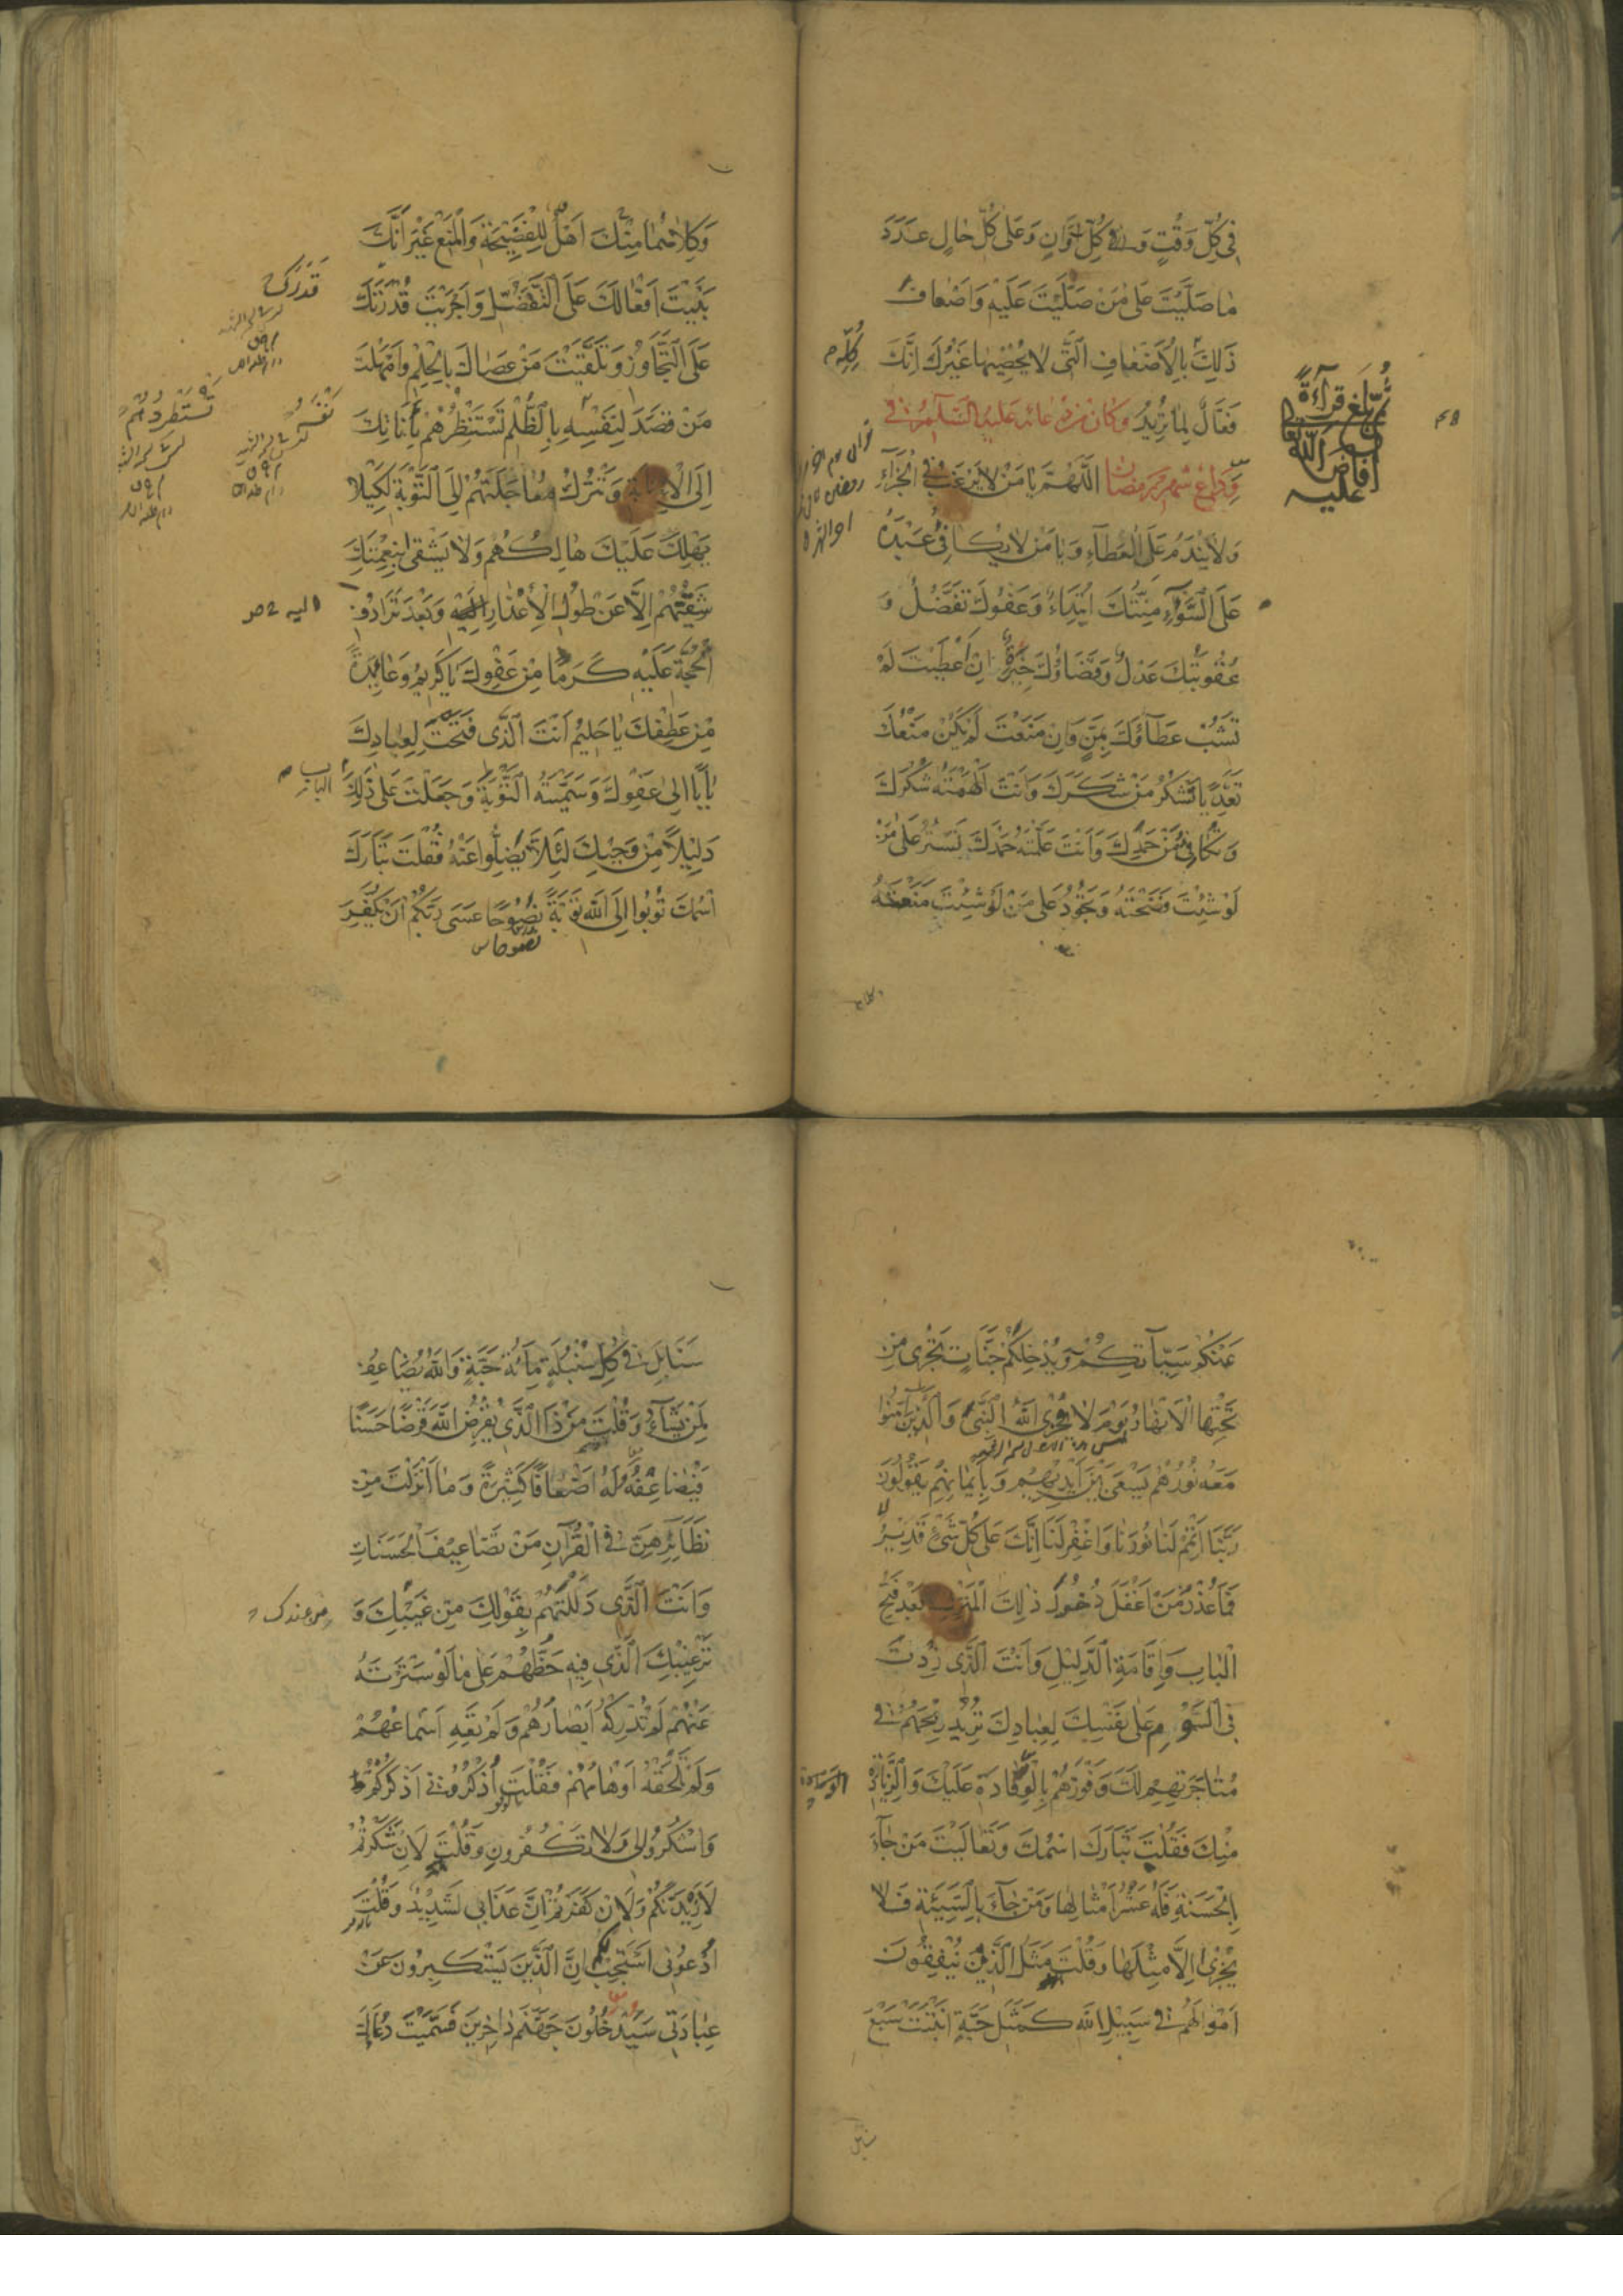 فِي كُلِّ وَقْتٍ وَفِي كُلِّ أَوَانٍ وَعَلَى كُلِّ حَالٍ عَدَدَ
مَا صَلَّيْتَ عَلَى مَنْ صَلَّيْتَ عَلَيْهِ وَأَضْعَافَ
ذَلِكَ بِالْأَضْعَافِ الَّتِي لَا يُحْصِيهَا غَيْرُكَ إِنَّكَ
كُلِّهِ
فَعَّالٌ لِمَا تُرِيدُ وَكَانَ مِنْ دُعَائِهِ عَلَيْهِ السَّلَامُ فِي
وَدَاعِ شَهْرِ رَمَضَانَ اللَّهُمَّ يَا مَنْ لَا يَرْغَبُ فِي الْجَزَاءِ
بلغ قراءة
أفاض الله
عليه
وَلَا يَنْدَمُ عَلَى الْعَطَاءِ وَيَا مَنْ لَا يُكَافِئُ عَبْدَهُ
عَلَى السَّوَاءِ مِنَّتُكَ ابْتِدَاءٌ وَعَفْوُكَ تَفَضُّلٌ وَ
عُقُوبَتُكَ عَدْلٌ وَقَضَاؤُكَ خِيَرَةٌ إِنْ أَعْطَيْتَ لَمْ
تَشُبْ عَطَاؤُكَ بِمَنٍّ وَإِنْ مَنَعْتَ لَمْ يَكُنْ مَنْعُكَ
تَعَدِّيًا تَشْكُرُ مَنْ شَكَرَكَ وَأَنْتَ أَلْهَمْتَهُ شُكْرَكَ
وَتُكَافِئُ مَنْ حَمِدَكَ وَأَنْتَ عَلَّمْتَهُ حَمْدَكَ تَسْتُرُ عَلَى مَنْ
لَوْ شِئْتَ فَضَحْتَهُ وَتَجُودُ عَلَى مَنْ لَوْ شِئْتَ مَنَعْتَهُ
وكلاهما
وَكِلَاهُمَا مِنْكَ أَهْلٌ لِلْفَضِيحَةِ وَالْمَنْعِ غَيْرَ أَنَّكَ
بَنَيْتَ أَفْعَالَكَ عَلَى التَّفَضُّلِ وَأَجْرَيْتَ قُدْرَتَكَ
قَدَرَكَ
عَلَى التَّجَاوُزِ وَتَلَقَّيْتَ مَنْ عَصَاكَ بِالْحِلْمِ وَأَمْهَلْتَ
مَنْ قَصَدَ لِنَفْسِهِ بِالظُّلْمِ تَسْتَنْظِرُهُمْ بِأَنَاتِكَ
تَسْتَطْرِدُهُمْ
إِلَى الْإِنَابَةِ وَتَتْرُكُ مُعَاجَلَتَهُمْ إِلَى التَّوْبَةِ لِكَيْلَا
يَهْلِكَ عَلَيْكَ هَالِكُهُمْ وَلَا يَشْقَى بِنِعْمَتِكَ
شَقِيُّهُمْ إِلَّا عَنْ طُولِ الْأَعْذَارِ إِلَيْهِ وَبَعْدَ تَرَادُفِ
اليه
الْحُجَّةِ عَلَيْهِ كَرَمًا مِنْ عَفْوِكَ يَا كَرِيمُ وَعَائِدَةً
مِنْ عَطْفِكَ يَا حَلِيمُ أَنْتَ الَّذِي فَتَحْتَ لِعِبَادِكَ
بَابًا إِلَى عَفْوِكَ وَسَمَّيْتَهُ التَّوْبَةَ وَجَعَلْتَ عَلَى ذَلِكَ
الباب
دَلِيلًا مِنْ وَحْيِكَ لِئَلَّا يَضِلُّوا عَنْهُ فَقُلْتَ تَبَارَكَ
اسْمُكَ تُوبُوا إِلَى اللَّهِ تَوْبَةً نَصُوحًا عَسَى رَبُّكُمْ أَنْ يُكَفِّرَ
نصوحا س
عَنْكُمْ سَيِّآتِكُمْ وَيُدْخِلَكُمْ جَنَّاتٍ تَجْرِي مِنْ
تَحْتِهَا الْأَنْهَارُ يَوْمَ لَا يُخْزِي اللَّهُ النَّبِيَّ وَالَّذِينَ آمَنُوا
مَعَهُ نُورُهُمْ يَسْعَى بَيْنَ أَيْدِيهِمْ وَبِأَيْمَانِهِمْ يَقُولُونَ
رَبَّنَا أَتْمِمْ لَنَا نُورَنَا وَاغْفِرْ لَنَا إِنَّكَ عَلَى كُلِّ شَيْءٍ قَدِيرٌ
فَمَا عُذْرُ مَنْ أَغْفَلَ دُخُولَ ذَلِكَ الْمَنْزِلِ بَعْدَ فَتْحِ
الْبَابِ وَإِقَامَةِ الدَّلِيلِ وَأَنْتَ الَّذِي زِدْتَ
فِي السَّوْمِ عَلَى نَفْسِكَ لِعِبَادِكَ تُرِيدُ رِبْحَهُمْ فِي
مُتَاجَرَتِهِمْ لَكَ وَفَوْزَهُمْ بِالْوِفَادَةِ عَلَيْكَ وَالزِّيَادَةِ
مِنْكَ فَقُلْتَ تَبَارَكَ اسْمُكَ وَتَعَالَيْتَ مَنْ جَاءَ
بِالْحَسَنَةِ فَلَهُ عَشْرُ أَمْثَالِهَا وَمَنْ جَاءَ بِالسَّيِّئَةِ فَلَا
يُجْزَى إِلَّا مِثْلَهَا وَقُلْتَ مَثَلُ الَّذِينَ يُنْفِقُونَ
أَمْوَالَهُمْ فِي سَبِيلِ اللَّهِ كَمَثَلِ حَبَّةٍ أَنْبَتَتْ سَبْعَ
سنابل
سَنَابِلَ فِي كُلِّ سُنْبُلَةٍ مِائَةُ حَبَّةٍ وَاللَّهُ يُضَاعِفُ
لِمَنْ يَشَاءُ وَقُلْتَ مَنْ ذَا الَّذِي يُقْرِضُ اللَّهَ قَرْضًا حَسَنًا
فَيُضَاعِفَهُ لَهُ أَضْعَافًا كَثِيرَةً وَمَا أَنْزَلْتَ مِنْ
نَظَائِرِهِنَّ فِي الْقُرْآنِ مِنْ تَضَاعِيفِ الْحَسَنَاتِ
وَأَنْتَ الَّذِي دَلَلْتَهُمْ بِقَوْلِكَ مِنْ غَيْبِكَ وَ
من عندك
تَرْغِيبِكَ الَّذِي فِيهِ حَظُّهُمْ عَلَى مَا لَوْ سَتَرْتَهُ
عَنْهُمْ لَمْ تُدْرِكْهُ أَبْصَارُهُمْ وَلَمْ تَعِهِ أَسْمَاعُهُمْ
وَلَمْ تَلْحَقْهُ أَوْهَامُهُمْ فَقُلْتَ اُذْكُرُونِي أَذْكُرْكُمْ
وَاشْكُرُوا لِي وَلَا تَكْفُرُونِ وَقُلْتَ لَإِنْ شَكَرْتُمْ
لَأَزِيدَنَّكُمْ وَلَإِنْ كَفَرْتُمْ إِنَّ عَذَابِي لَشَدِيدٌ وَقُلْتَ
اُدْعُونِي أَسْتَجِبْ لَكُمْ إِنَّ الَّذِينَ يَسْتَكْبِرُونَ عَنْ
عِبَادَتِي سَيَدْخُلُونَ جَهَنَّمَ دَاخِرِينَ فَسَمَّيْتَ دُعَاءَكَ